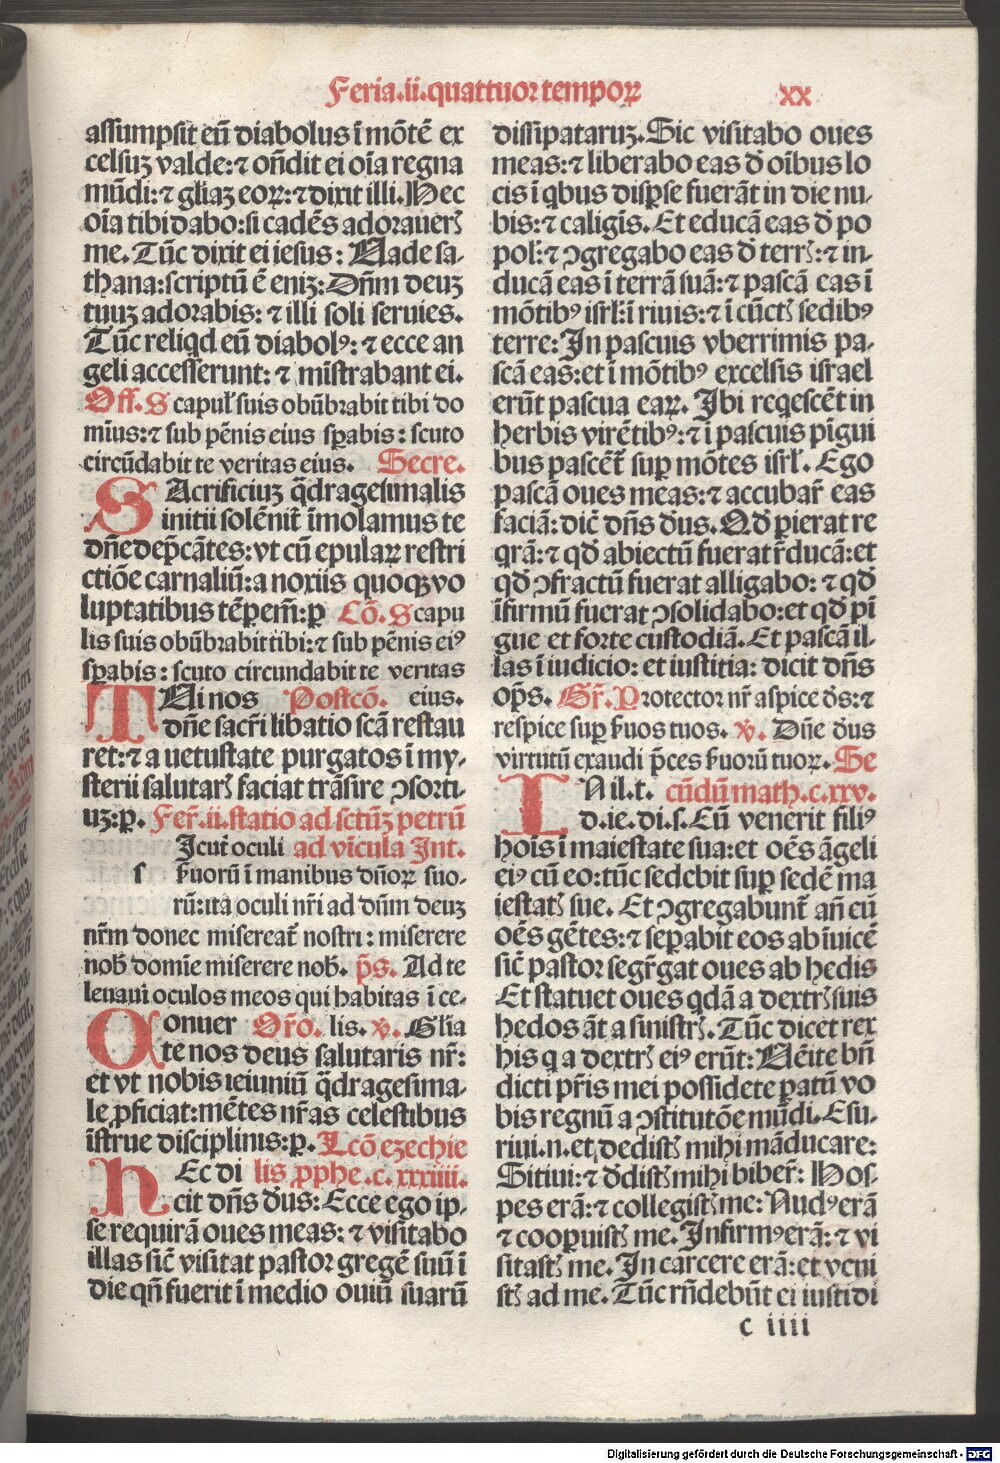 Feria.ii.quattuor tempoꝝ xx
assumpsit eū diabolus ī mōtē ex
celsuꝫ valde: ⁊ oñdit ei oīa regna
mūdi: ⁊ gl̄iaꝫ eoꝝ: ⁊ dixit illi. Hec
oīa tibi dabo: si cadēs adoraueris
me. Tūc dixit ei iesus: Vade sa⸗
thana: scriptū ē eniꝫ: Dn̄m deuꝫ
tuuꝫ adorabis: ⁊ illi soli seruies.
Tūc reliqd eū diabolꝰ: ⁊ ecce an
geli accesserunt: ⁊ mīstrabant ei.
Off. Scapul̓ suis obūbrabit tibi do
mīus: ⁊ sub pēnis eius sꝑabis: scuto
circūdabit te veritas eius. Secre.
SAcrificiuꝫ q̄dragesimalis
initii solēnit̓ īmolamus te
dn̄e dep̄cātes: vt cū epulaꝝ restri
ctiōe carnaliū: a noxiis quoqꝫ vo
luptatibus tēꝑem̄: ꝑ Cō. Scapu
lis suis obūbrabit tibi: ⁊ sub pēnis eiꝰ
sꝑabis: scuto circundabit te veritas
TVi nos Postcō. eius.
dn̄e sacr̓i libatio scā restau
ret: ⁊ a uetustate purgatos ī my⸗
sterii salutar̓ faciat trāsire ꝯsorti⸗
uꝫ: ꝑ. Fer̓.ii. statio ad sctūꝫ petrū
s Icut̓ oculi ad vīcula Int.
ẜuorū ī manibus dn̄oꝝ suo⸗
rū: ita oculi nr̄i ad dn̄m deuꝫ
nr̄m donec misereat̓ nostri: miserere
nob̓ domīe miserere nob̓. p̄s. Ad te
leuaui oculos meos qui habitas ī ce⸗
COnuer Or̄o. lis. ℣. Gl̄ia
te nos deus salutaris nr̄:
et vt nobis ieiuniū q̄dragesima⸗
le ꝓficiat: mētes nr̄as celestibus
īstrue disciplinis: ꝑ. Lcō ezechie
HEc di lis ꝓphe. c. xxxiiii.
cit dn̄s d̓us: Ecce ego ip⸗
se requirā oues meas: ⁊ visitabo
illas sic̄ visitat pastor gregē suū ī
die qn̄ fuerit ī medio ouiū suarū
dissipataruꝫ. Sic visitabo oues
meas: ⁊ liberabo eas d̓ oībus lo
cis ī qbus disꝑse fuerāt in die nu⸗
bis: ⁊ caligīs. Et educā eas d̓ po
pol̓: ⁊ ꝯgregabo eas d̓ terr̓: ⁊ in⸗
ducā eas ī terrā suā: ⁊ pascā eas ī
mōtibꝰ isrl̓: ī riuis: ⁊ ī cūct̓ sedibꝰ
terre: In pascuis vberrimis pa⸗
scā eas: et ī mōtibꝰ excelsis israel
erūt pascua eaꝝ. Ibi reqescēt in
herbis virētibꝰ: ⁊ ī pascuis pīgui
bus pascēt̓ suꝑ mōtes isrl̓. Ego
pascā oues meas: ⁊ accubar̓ eas
faciā: dic̄ dn̄s d̓us. Qd̓ ꝑierat re
qrā: ⁊ qd̓ abiectū fuerat r̓ducā: et
qd̓ ꝯfractū fuerat alligabo: ⁊ qd̓
īfirmū fuerat ꝯsolidabo: et qd̓ pī
gue et forte custodiā. Et pascā il⸗
las ī iudicio: et iustitia: dicit dn̄s
op̄s. Gr̄. Protector nr̄ aspice d̓s: ⁊
respice suꝑ ẜuos tuos. ℣. Dn̄e d̓us
virtutū exaudi p̄ces ẜuorū tuoꝝ. Se
IN il.t. cūdū math. c. xxv.
d.ie.di.s. Cū venerit filiꝰ
hoīs ī maiestate sua: et oēs āgeli
eiꝰ cū eo: tūc sedebit suꝑ sedē ma
iestat̓ sue. Et ꝯgregabunt̓ an̄ cū
oēs gētes: ⁊ seꝑabit eos ab īuicē
sic̄ pastor segr̓gat oues ab hedis
Et statuet oues qdā a dextr̓ suis
hedos āt a sinistr̓. Tūc dicet rex
his q a dextr̓ eiꝰ erūt: Venīte bn̄
dicti pr̄is mei possidete ꝑatū vo
bis regnū a ꝯstitutōe mūdi. Esu⸗
riui.n.et dedist̓ mihi māducare:
Sitiui: ⁊ d̓dist̓ mihi biber̓: Hos⸗
pes erā: ⁊ collegist̓ me: Nudꝰ erā
⁊ cooꝑuist̓ me. Infirmꝰ erā: ⁊ vi
sitast̓ me. In carcere erā: et veni
st̓ ad me. Tūc rn̄debūt ei iusti di
c iiii
Digitalisierung gefördert durch die Deutsche Forschungsgemeinschaft - DFG